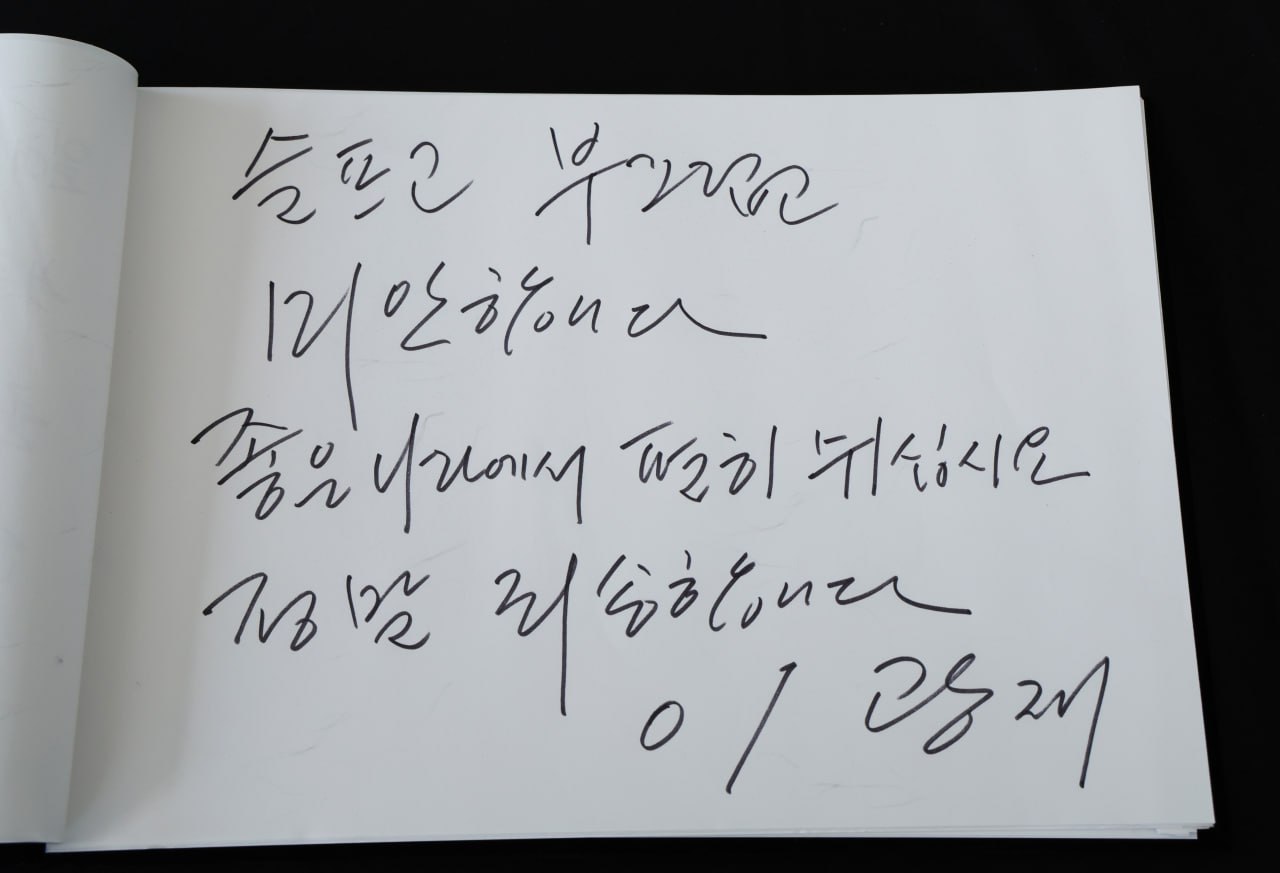 슬프고 부끄럽고
미안합니다
좋은 나라에서 편히 쉬십시오
정말 죄송합니다
이 광재